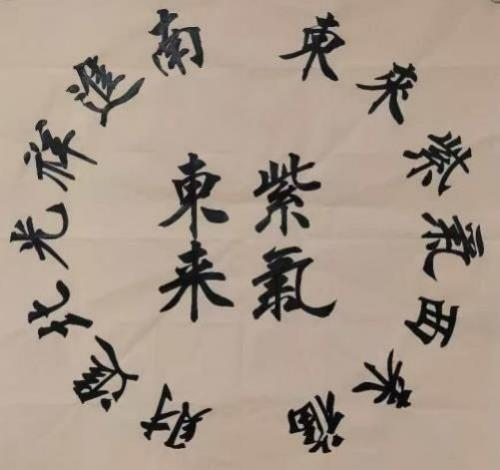 紫氣
東来
東来紫氣西来福
南進祥光北進財